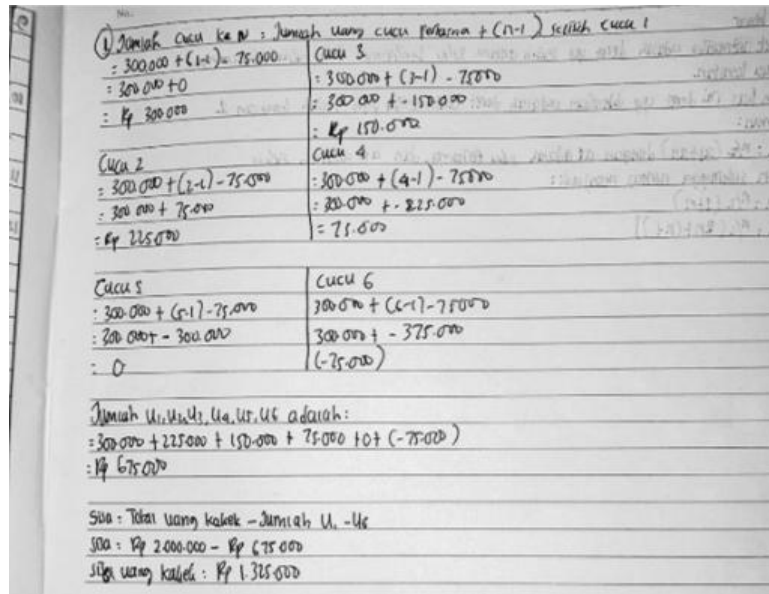 No.
① Jumlah Cucu ke N : Jumlah uang cucu pertama + (n-1) selisih cucu 1
: 300.000 + (1-1) - 75.000
: 300 000 + 0
: Rp 300.000
Cucu 3
: 300.000 + (3-1) - 75000
: 300 000 + - 150.000
: Rp 150.000
Cucu 2
: 300.000 + (2-1) - 75.000
: 300 000 + 75.000
: Rp 225000
Cucu 4
: 300.000 + (4-1) - 75000
: 300.000 + - 225.000
: 75.000
Cucu 5
: 300.000 + (5-1) - 75.000
: 300 000 + - 300.000
: 0
Cucu 6
300 000 + (6-1) - 75000
300 000 + - 375.000
(-75.000)
Jumlah U1, U2, U3, U4, U5, U6 adalah :
: 300.000 + 225000 + 150.000 + 75.000 + 0 + (-75.000)
: Rp 675000
Sisa : Total uang kakek - Jumlah U1 - U6
Sisa : Rp 2.000.000 - Rp 675 000
Sisa uang kakek : Rp 1.325.000